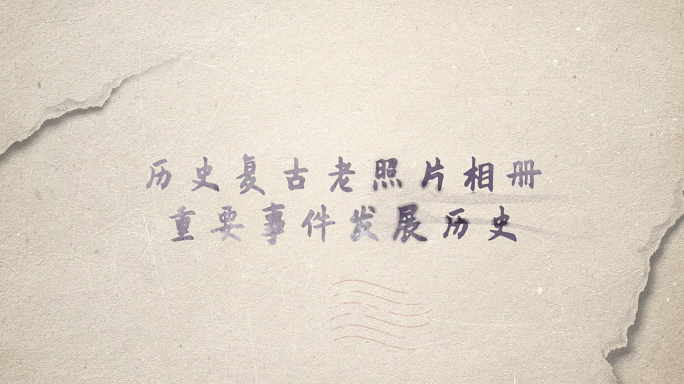 历史复古老照片相册
重要事件发展历史